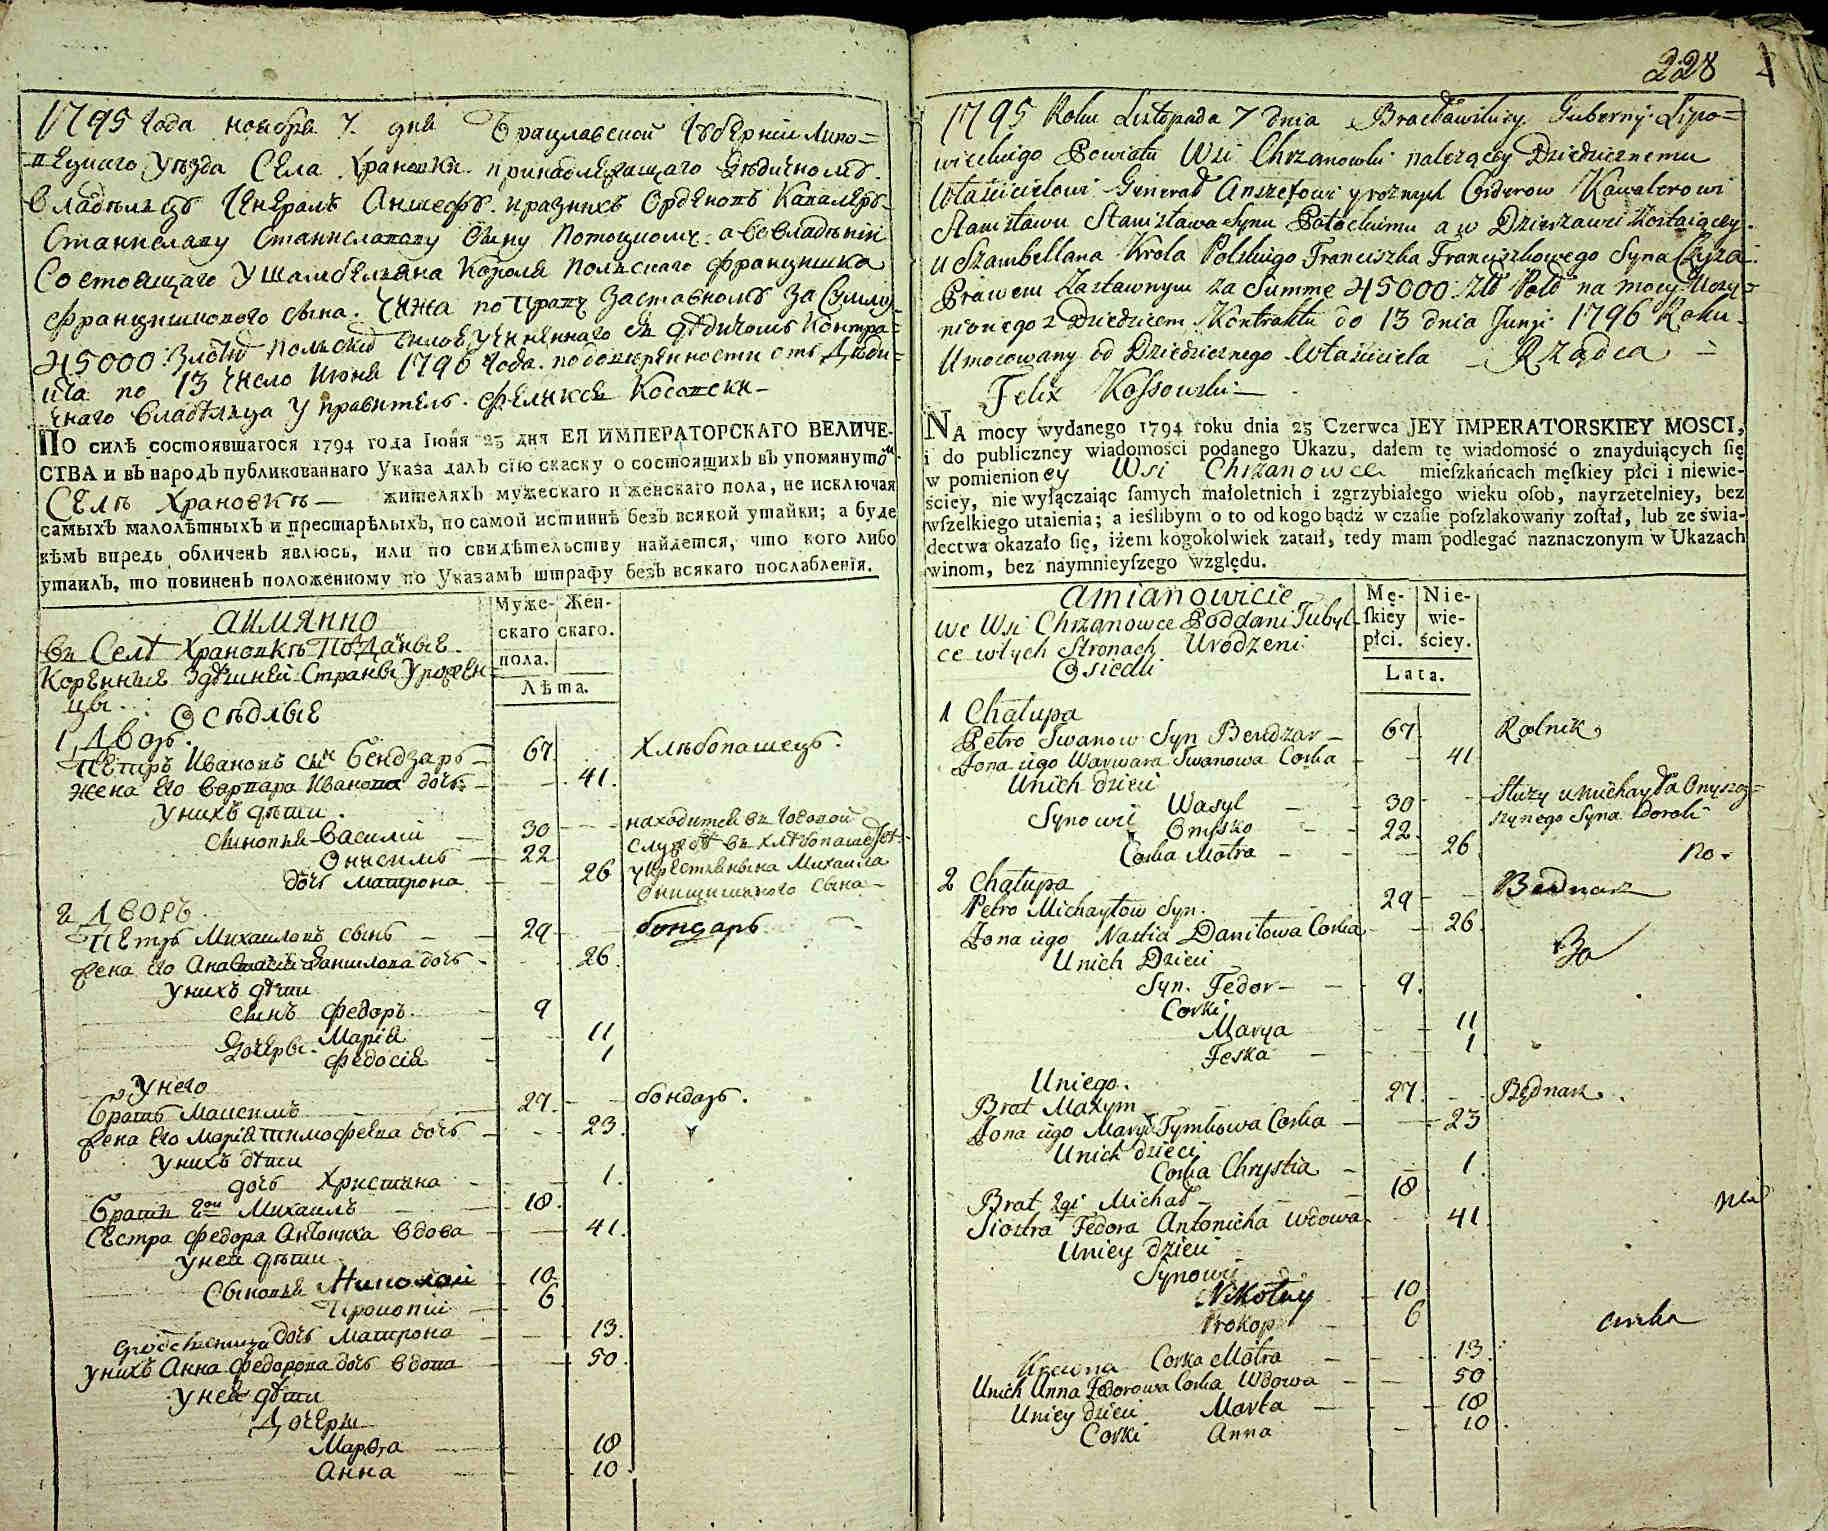 1795 года ноября 7. дня Брацлавской Губернiи Липо=
вецкаго Уезда Села Храновки принадлежащаго Дедичномъ
Владельцъ Генералъ Аншефъ. и разныхъ Орденовъ Кавалеръ
Станиславу Станиславову Сыну Потоцкому. а во владенiи
Состоящаго у Шамбеляна Короля Польскаго Францишка
Францишкового сына. Чижа по праву Заставномъ За Сумму
45000: Злот: Польски
ича по 13 число Июня 1796 Года. по доверенности отъ Деди=
чнаго Владельца у правитель. Феликса Косовски
ПО силѣ состоявшагося 1794 года Iюня 25 дня ЕЯ ИМПЕРАТОРСКАГО ВЕЛИЧЕ-
СТВА и въ народъ публикованнаго Указа далъ сiю скаску о состоящихъ въ упомянутомъ
Селѣ Храновкѣ жителяхъ мужескаго и женскаго пола, не исключая
самыхъ малолѣтныхъ и престарѣлыхъ, по самой истиннѣ безъ всякой утайки; а буде
кѣмъ впредь обличенъ явлюсь, или по свидѣтельству найдется, что кого либо
утаилъ, то повиненъ положенному по Указамъ штрафу безъ всякаго послабленiя.
аимянно
Муже- скаго пола.
Жен- скаго.
Лѣта.
въ Селѣ Храновкѣ Подданые
Коренные Здѣшней Страны Урожен
цы.
Осѣдлые
1, Дворъ.
Петръ Ивановъ сынъ Бендзарь 67 Хлѣбопашецъ.
жена его Варвара Иванова дочь 41.
у нихъ дѣти
сыновья Василiй 30 находится въ Годовой
Онисимъ 22 службѣ въ хлѣбопашест.
дочь Матрона 26 у крестьянина Михаила
Онищишиного сына
2 Дворъ
Петръ Михаиловъ сынъ 29 бондаръ
жена его Анастасiя Данилова дочь 26.
у нихъ дѣти
сынъ Федоръ. 9
дочеры Марiя 11
Федосiя 1
у него
братъ Максимъ 27. бондаръ.
жена его Марiя Тимофѣева дочь 23.
у нихъ дѣти
дочь Христина 1.
братъ 2ой Михаилъ 18.
Сестра Федора Антониха вдова 41.
у ней дѣти
Сыновья Николай 10
Прокопiй 6
дочь Матрона 13.
у нихъ Анна Федорова дочь вдова 50.
у ней дѣти
Дочеры
Марѳа 18
Анна 10
228
1795 Roku Listopada 7 dnia Bracławskiey Guberny: Lipo=
wieckiego Powiatu Wsi Chrzanowki należącey Dziedzicznemu
Właścicielowi Generał Anszefowi y roznych Orderow Kawalerowi
Stanisławu Stanisława Synu Potockiemu a w Dzierżawie zostaiącey
u Szambellana Krola Polskiego Franciszka Franciszkowego Syna Czyża
Prawem Zastawnym za Summę 45000: Zło: Pols na mocy Uczy=
nionego z Dziedzicem Kontraktu do 13 dnia Junyi 1796 Roku
Umocowany od Dziedzicznego Właściciela Rządca
Felix Kossowski
NA mocy wydanego 1794 roku dnia 25 Czerwca JEY IMPERATORSKIEY MOSCI,
i do publiczney wiadomości podanego Ukazu, dałem tę wiadomość o znayduiących się
w pomienioney Wsi Chrzanowce mieſzkańcach męſkiey płci i niewie-
ściey, nie wyłączaiąc ſamych małoletnich i zgrzybiałego wieku oſob, nayrzetelniey, bez
wſzelkiego utaienia; a ieślibym o to od kogo bądź w czaſie poſzlakowany zoſtał, lub ze świa-
dectwa okazało ſię, iżem kogokolwiek zataił, tedy mam podlegać naznaczonym w Ukazach
winom, bez naymnieyſzego względu.
amianowicie
Mę- ſkiey płci.
Nie- wie- ściey.
Lata.
we Wsi Chrzanowce Poddani Tubyl
ce w tych Stronach Urodzeni
Osiedli
1 Chałupa
Petro Iwanow Syn Bendzar 67 Rolnik
Żona iego Warwara Iwanowa Corka 41
U nich dzieci
Synowie Wasyl 30 Służy u Michayła Onyszcz=
Onyśko 22. szynego Syna
Corka Motra 26 no.
2 Chałupa
Petro Michayłow Syn. 29 Bednarz
Żona iego Nastia Daniłowa Corka 26.
U nich Dzieci
Syn. Fedor 9.
Corki
Marya 11
Feska 1
U niego.
Brat Maxym 27. Bednarz.
Żona iego Marya Tymkowa Corka 23
U nich dzieci
Corka Chrystia 1.
Brat 2gi Michał 18
Siostra Fedora Antonicha wdowa 41.
U niey dzieci
Synowie
Nikołay 10
Prokop 6
Corka Motra 13.
Krewna
U nich Anna Fedorowa Corka Wdowa 50
U niey dzieci Marta 18
Corki Anna 10.